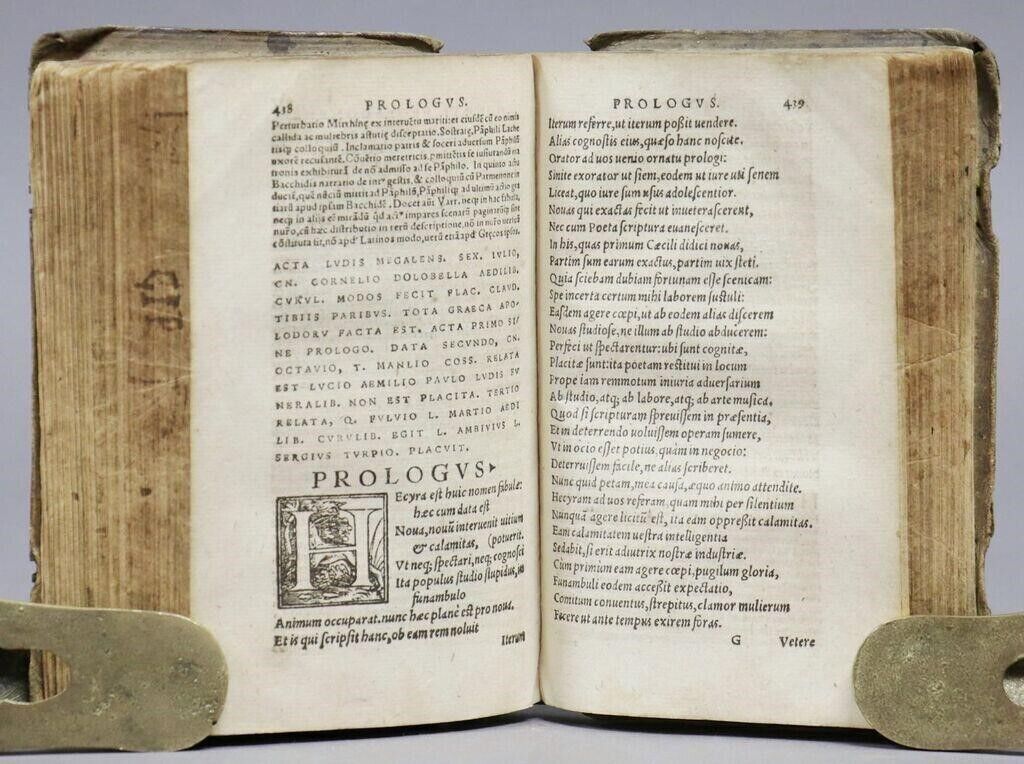 438 PROLOGVS.
Perturbatio Mirrhinę ex interuētu mariti: et eiusdē cū eo nimis
callida ac muliebris astutię disceptatio. Sostratę, Pāphili Lache
tisq; colloquiū. Inclamatio patris & soceri aduersum Pāphilū
uxorē recusantē. Cōuētio meretricis, pmittētis se iusiurandū ma
tronis exhibiturā de nō admisso ad se Pāphilo. In quinto actu
Bacchidis narratio de int' gestis, & colloquiū cū Parmenonem
ducis, quę nūciū mittit ad Pāphilū, Pāphiliq; ad ultimū actio gra
tiarū apud ipsam Bacchidē. Docet aūt Varr. neq; in hac fabula,
neq; in alijs eē mirādū qd act' impares scenarū paginarūq; sint
nūro, cū hæc distributio in rerū descriptione, nō in nūro uersuū
cōstituta sit, nō apd' Latinos modo, uerū etiā apd' Gręcos ipsos.
ACTA LVDIS MEGALENS. SEX. IVLIO,
CN. CORNELIO DOLOBELLA AEDILIB.
CVRVL. MODOS FECIT FLAC. CLAVD.
TIBIIS PARIBVS. TOTA GRAECA APO-
LODORV FACTA EST. ACTA PRIMO SI-
NE PROLOGO. DATA SECVNDO, CN.
OCTAVIO, T. MANLIO COSS. RELATA
EST LVCIO AEMILIO PAVLO LVDIS FV
NERALIB. NON EST PLACITA. TERTIO
RELATA, Q. FVLVIO L. MARTIO AEDI
LIB. CVRVLIB. EGIT L. AMBIVIVS L.
SERGIVS TVRPIO. PLACVIT.
PROLOGVS
HEcyra est huic nomen fabulæ:
hæc cum data est
Noua, nouū interuenit uitium
& calamitas, (potuerit.
Vt neq; spectari, neq; cognosci
Ita populus studio stupidus, in
funambulo
Animum occuparat. nunc hæc planè est pro noua.
Et is qui scripsit hanc, ob eam rem noluit
Iterum
PROLOGVS. 439
Iterum referre, ut iterum possit uendere.
Alias cognostis eius, quæso hanc noscite.
Orator ad uos uenio ornatu prologi:
Sinite exorator ut siem, eodem ut iure uti senem
Liceat, quo iure sum usus adolescentior.
Nouas qui exactas fecit ut inueterascerent,
Nec cum Poeta scriptura euanesceret.
In his, quas primum Cæcili didici nouas,
Partim sum earum exactus, partim uix steti.
Quia sciebam dubiam fortunam esse scenicam:
Spe incerta certum mihi laborem sustuli:
Easdem agere cœpi, ut ab eodem alias discerem
Nouas studiose, ne illum ab studio abducerem:
Perfeci ut spectarentur: ubi sunt cognitæ,
Placitæ sunt: ita poetam restitui in locum
Prope iam remmotum iniuria aduersarium
Ab studio, atq; ab labore, atq; ab arte musica.
Quod si scripturam spreuissem in præsentia,
Et in deterrendo uoluissem operam sumere,
Vt in ocio esset potius, quàm in negocio:
Deterruissem facile, ne alias scriberet.
Nunc quid petam, mea causa, æquo animo attendite.
Hecyram ad uos referam, quam mihi per silentium
Nunquā agere licitū est, ita eam oppressit calamitas.
Eam calamitatem uestra intelligentia
Sedabit, si erit adiutrix nostræ industriæ.
Cum primium eam agere cœpi, pugilum gloria,
Funambuli eodem accessit expectatio,
Comitum conuentus, strepitus, clamor mulierum
Fecere ut ante tempus exirem foras.
G Vetere